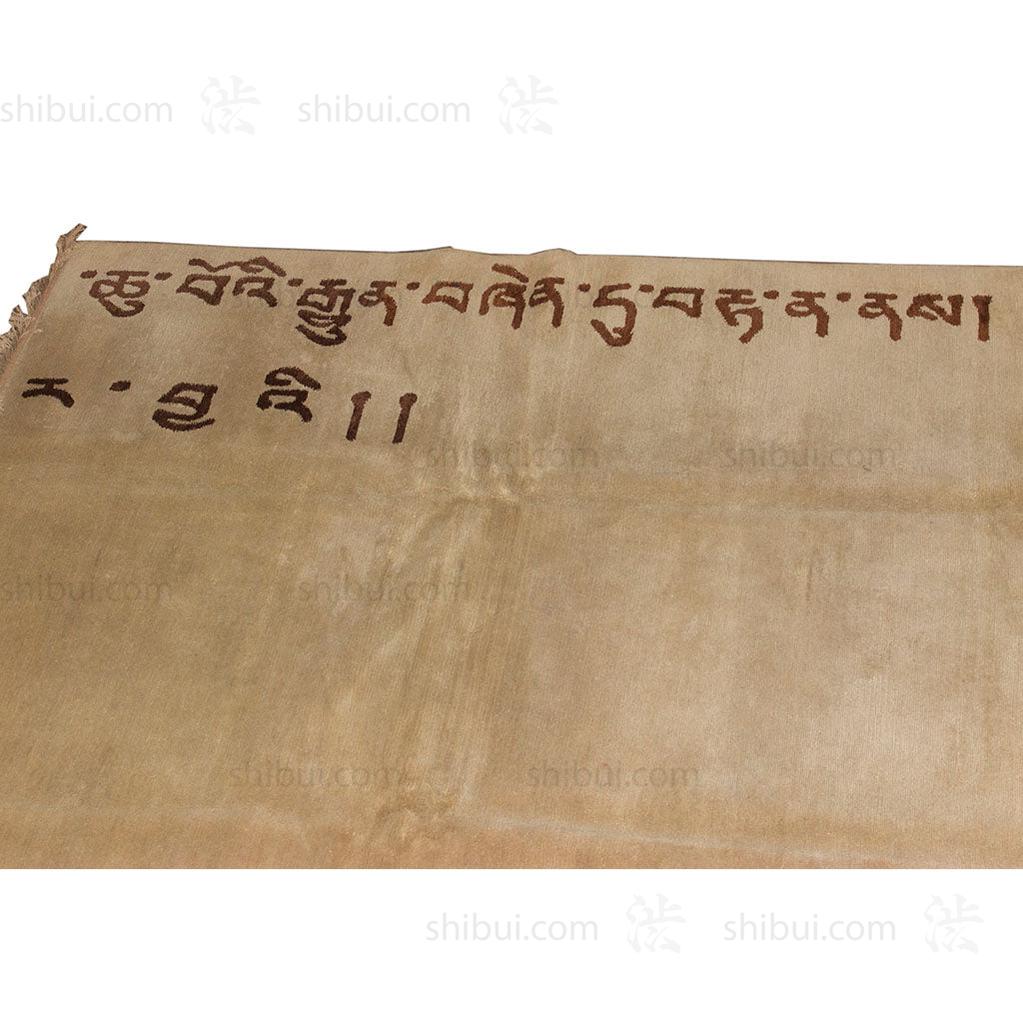 shibui.com 渋 shibui.com 渋
་ཆུ་བོའི་རྒྱུན་བཞེན་དུ་བརྟ་ན་ནས།
ར་བྱའི།།
shibui.com shibui.com
shibui.com shibui.com
shibui.com shibui.com
shibui.com 渋 shibui.com 渋